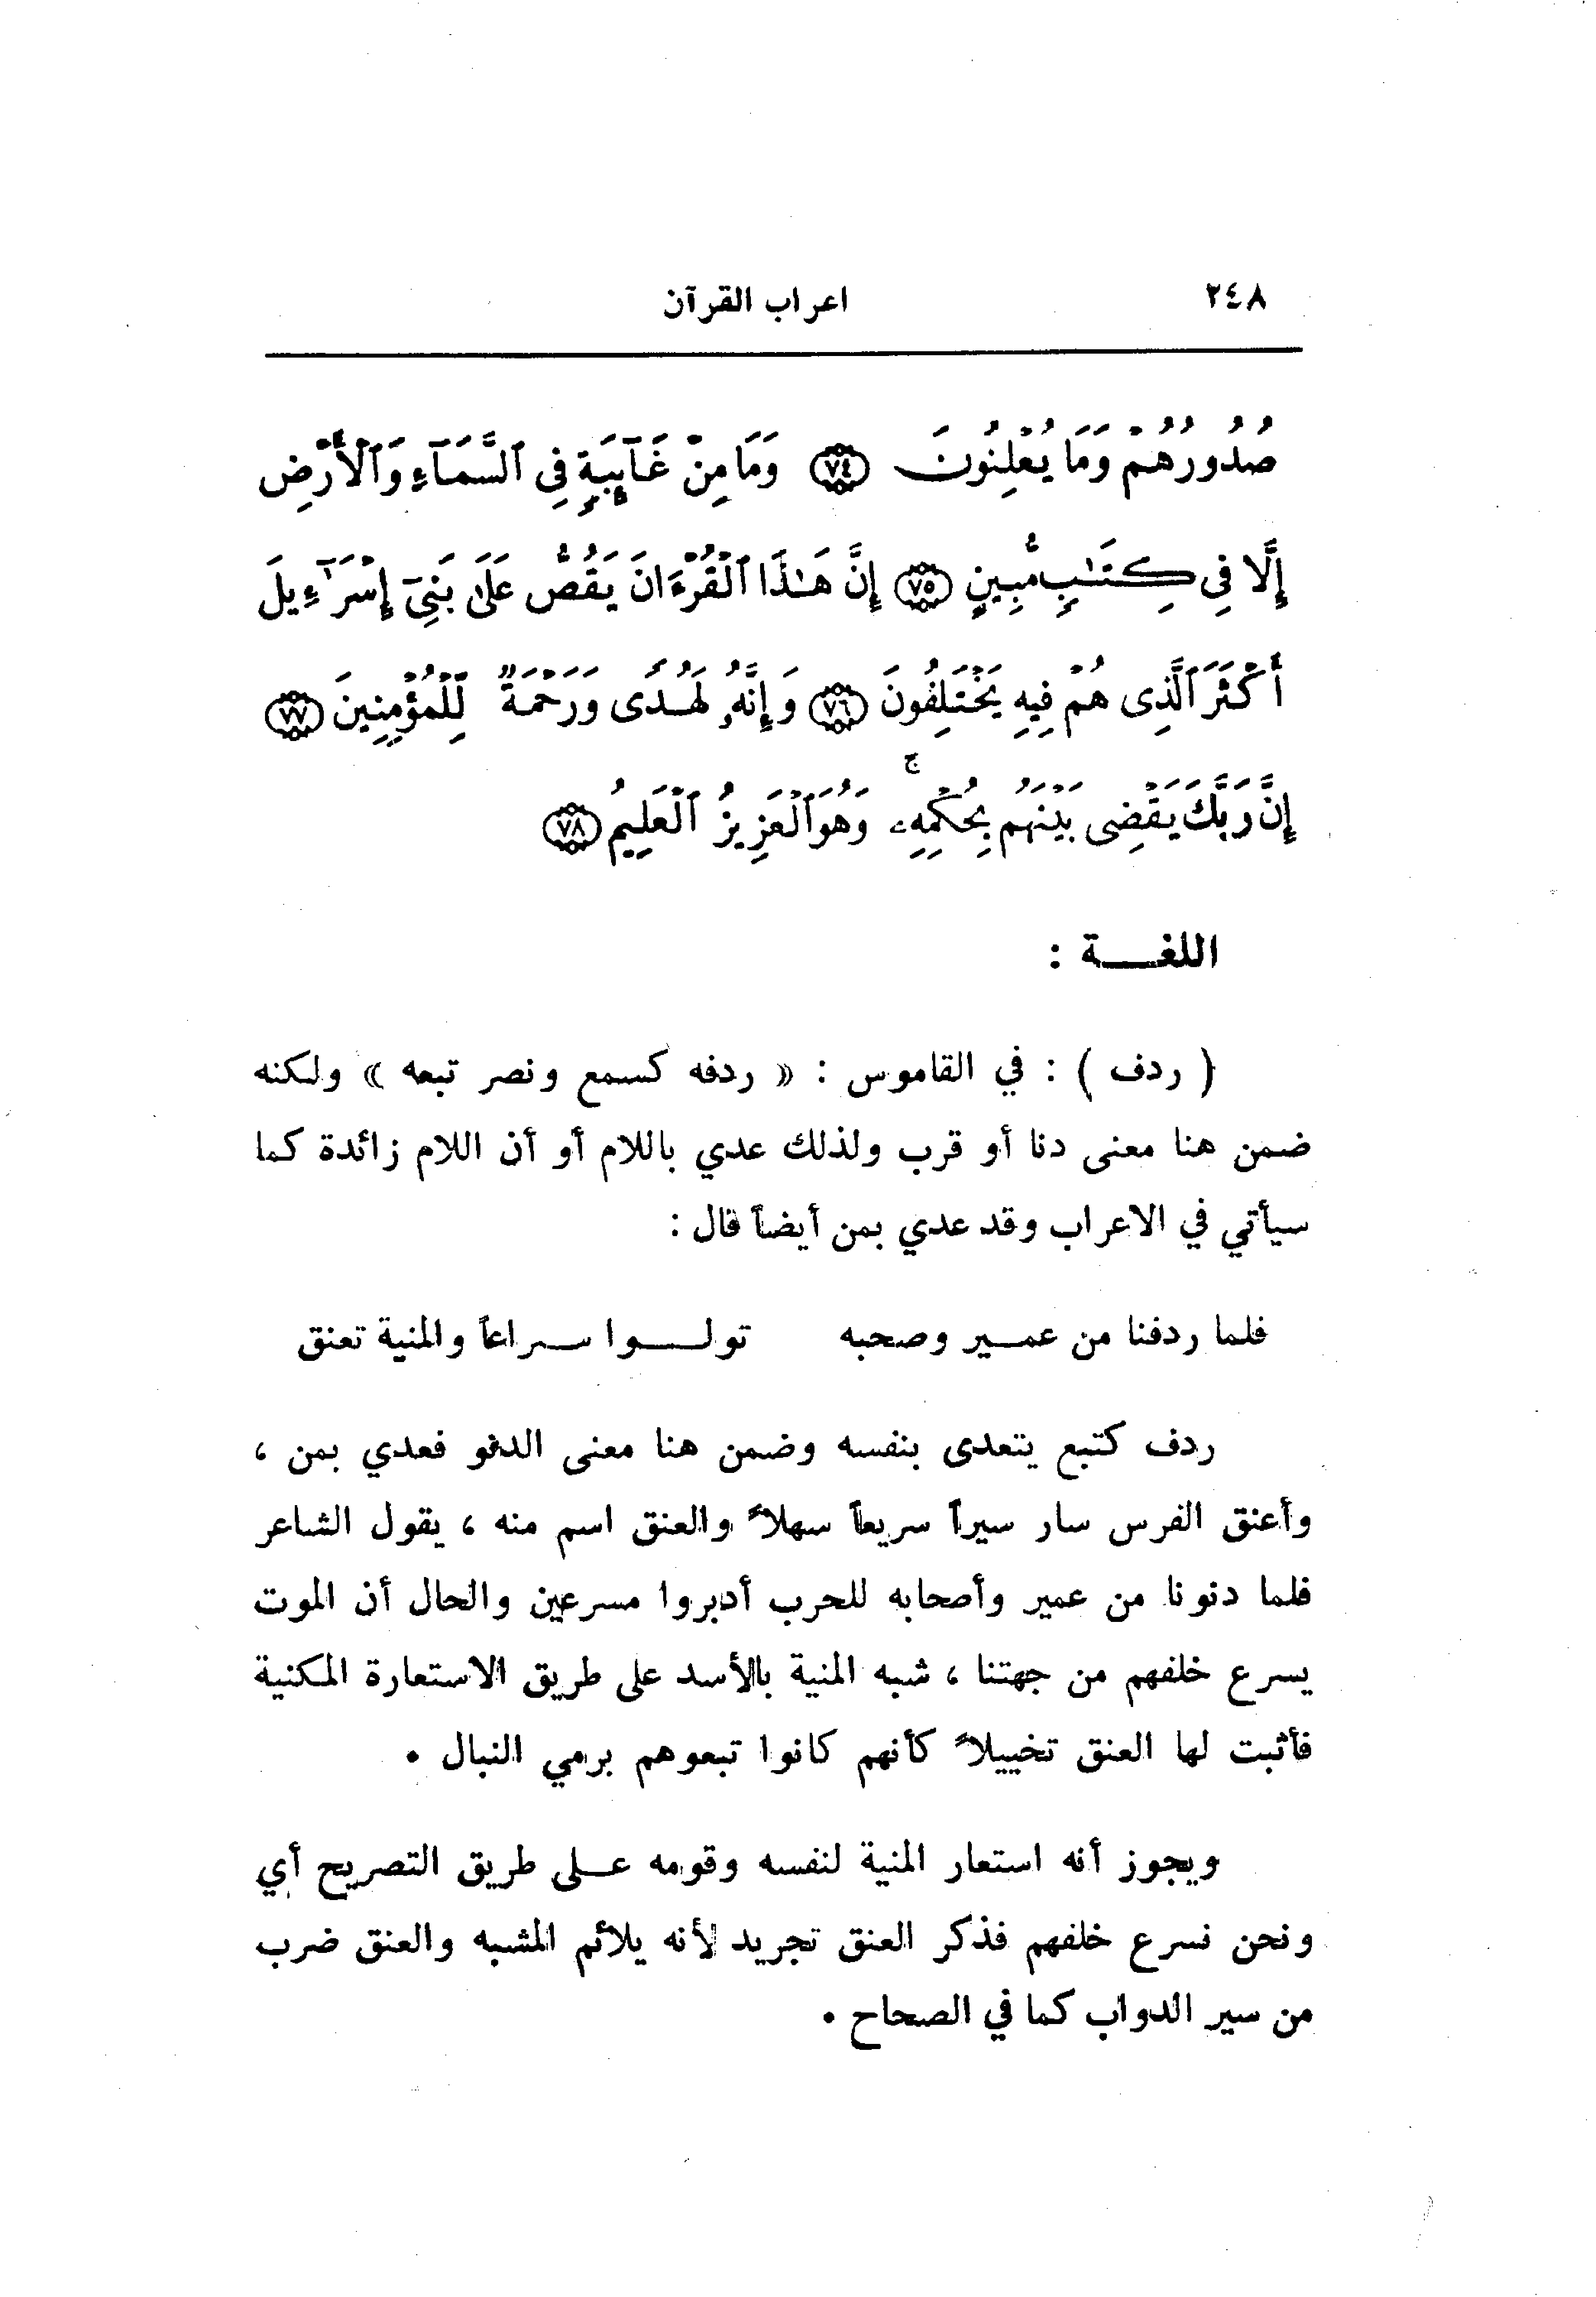 ٢٤٨ اعراب القرآن
صُدُورُهُمْ وَمَا يُعْلِنُونَ ﴿٧٤﴾ وَمَا مِنْ غَآئِبَةٍ فِى ٱلسَّمَآءِ وَٱلْأَرْضِ
إِلَّا فِى كِتَٰبٍ مُّبِينٍ ﴿٧٥﴾ إِنَّ هَٰذَا ٱلْقُرْءَانَ يَقُصُّ عَلَىٰ بَنِىٓ إِسْرَٰٓءِيلَ
أَكْثَرَ ٱلَّذِى هُمْ فِيهِ يَخْتَلِفُونَ ﴿٧٦﴾ وَإِنَّهُۥ لَهُدًى وَرَحْمَةٌ لِّلْمُؤْمِنِينَ ﴿٧٧﴾
إِنَّ رَبَّكَ يَقْضِى بَيْنَهُم بِحُكْمِهِۦ ۚ وَهُوَ ٱلْعَزِيزُ ٱلْعَلِيمُ ﴿٧٨﴾
اللغـــة :
( ردف ) : في القاموس : « ردفه كسمع ونصر تبعه » ولكنه
ضمن هنا معنى دنا أو قرب ولذلك عدي باللام أو أن اللام زائدة كما
سيأتي في الاعراب وقد عدي بمن أيضاً قال :
فلما ردفنا من عمـير وصحبه تولـــوا سـراعاً والمنية تعنق
ردف كتبع يتعدى بنفسه وضمن هنا معنى الدنو فعدي بمن ،
وأعنق الفرس سار سيراً سريعاً سهلاً والعنق اسم منه ، يقول الشاعر
فلما دنونا من عمير وأصحابه للحرب أدبروا مسرعين والحال أن الموت
يسرع خلفهم من جهتنا ، شبه المنية بالأسد على طريق الاستعارة المكنية
فأثبت لها العنق تخييلاً كأنهم كانوا تبعوهم برمي النبال .
ويجوز أنه استعار المنية لنفسه وقومه عـلى طريق التصريح أي
ونحن نسرع خلفهم فذكر العنق تجريد لأنه يلائم المشبه والعنق ضرب
من سير الدواب كما في الصحاح .